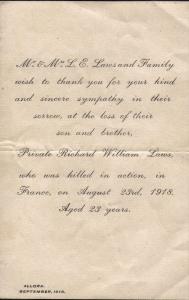 Mr. & Mrs. L. E. Laws and Family
wish to thank you for your kind
and sincere sympathy in their
sorrow, at the loss of their
son and brother,
Private Richard William Laws,
who was killed in action, in
France, on August 23rd, 1918.
Aged 23 years.
ALLORA.
SEPTEMBER, 1918.